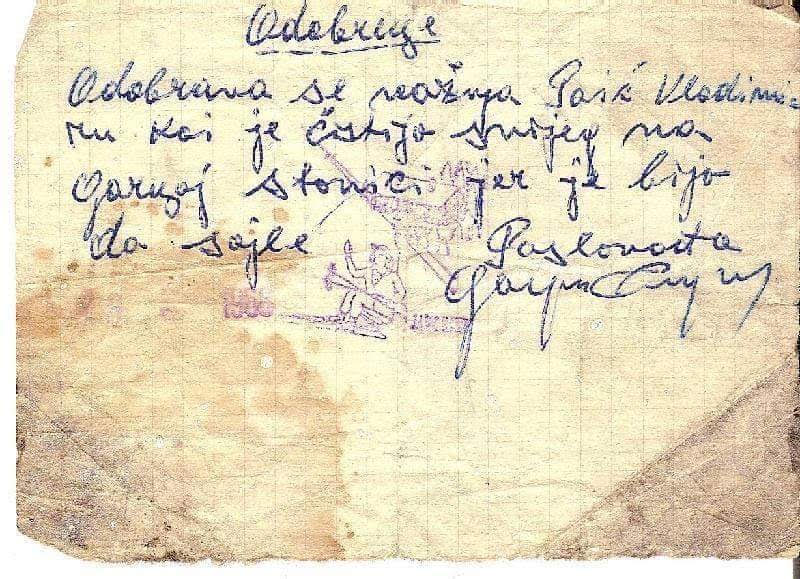 Odobrenje
Odobrava se vožnja Paić Vladimi
ru koi je čistijo snijeg na
gornjoj stanici jer je bijo
do sajle Poslovođa